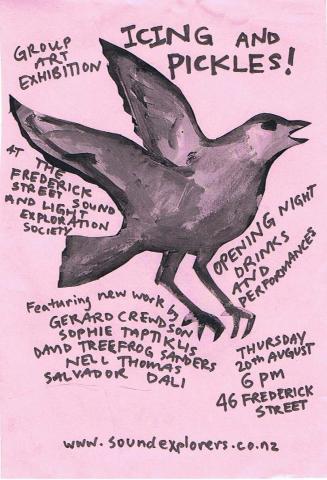 ICING AND
PICKLES!
GROUP
ART
EXHIBITION
AT THE
FREDERICK
STREET SOUND
AND LIGHT
EXPLORATION
SOCIETY
OPENING NIGHT
DRINKS
AND
PERFORMANCES
Featuring new work by
GERARD CREWDSON
SOPHIE TAPTIKLIS
DAVID TREEFROG SANDERS
NELL THOMAS
SALVADOR DALI
THURSDAY
20th AUGUST
6 PM
46 FREDERICK
STREET
www.soundexplorers.co.nz